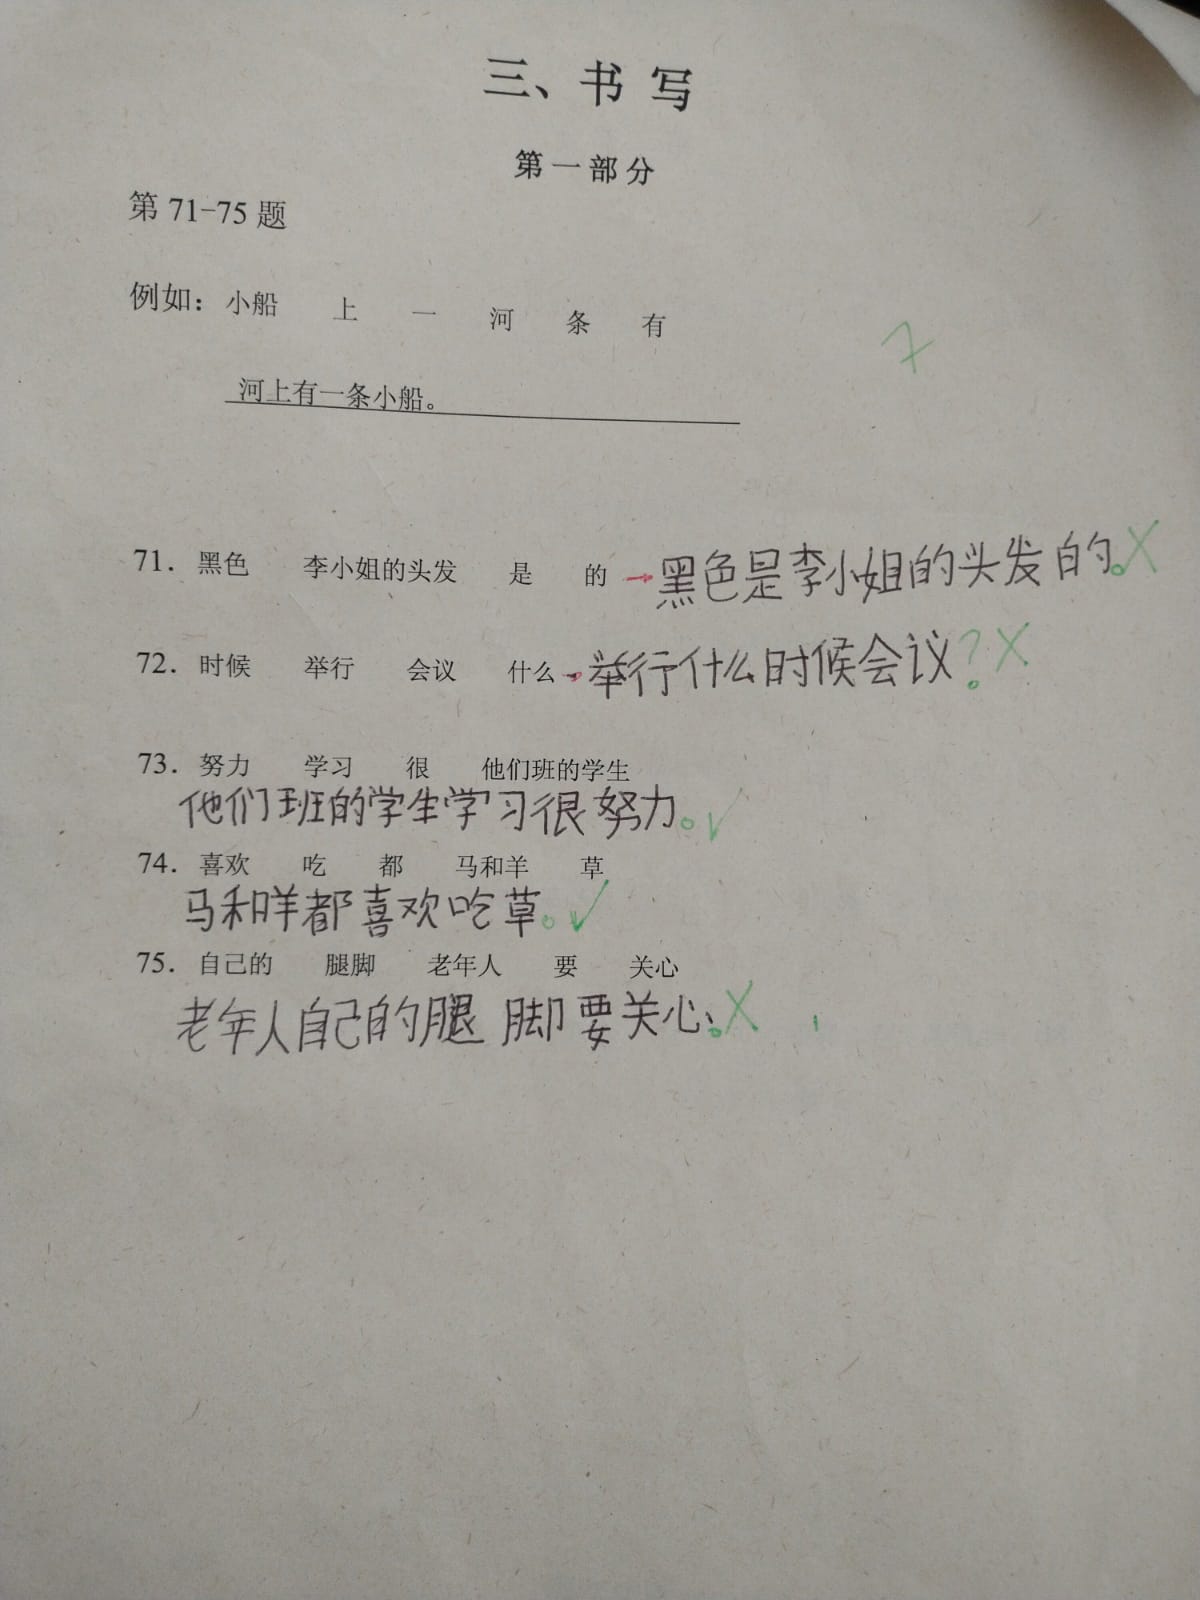 三、书 写
第一部分
第 71-75 题
例如：小船 上 一 河 条 有
河上有一条小船。
71. 黑色 李小姐的头发 是 的 → 黑色是李小姐的头发的。X
72. 时候 举行 会议 什么 → 举行什么时候会议？X
73. 努力 学习 很 他们班的学生
他们班的学生学习很努力。✓
74. 喜欢 吃 都 马和羊 草
马和咩都喜欢吃草。✓
75. 自己的 腿脚 老年人 要 关心
老年人自己的腿脚要关心。X